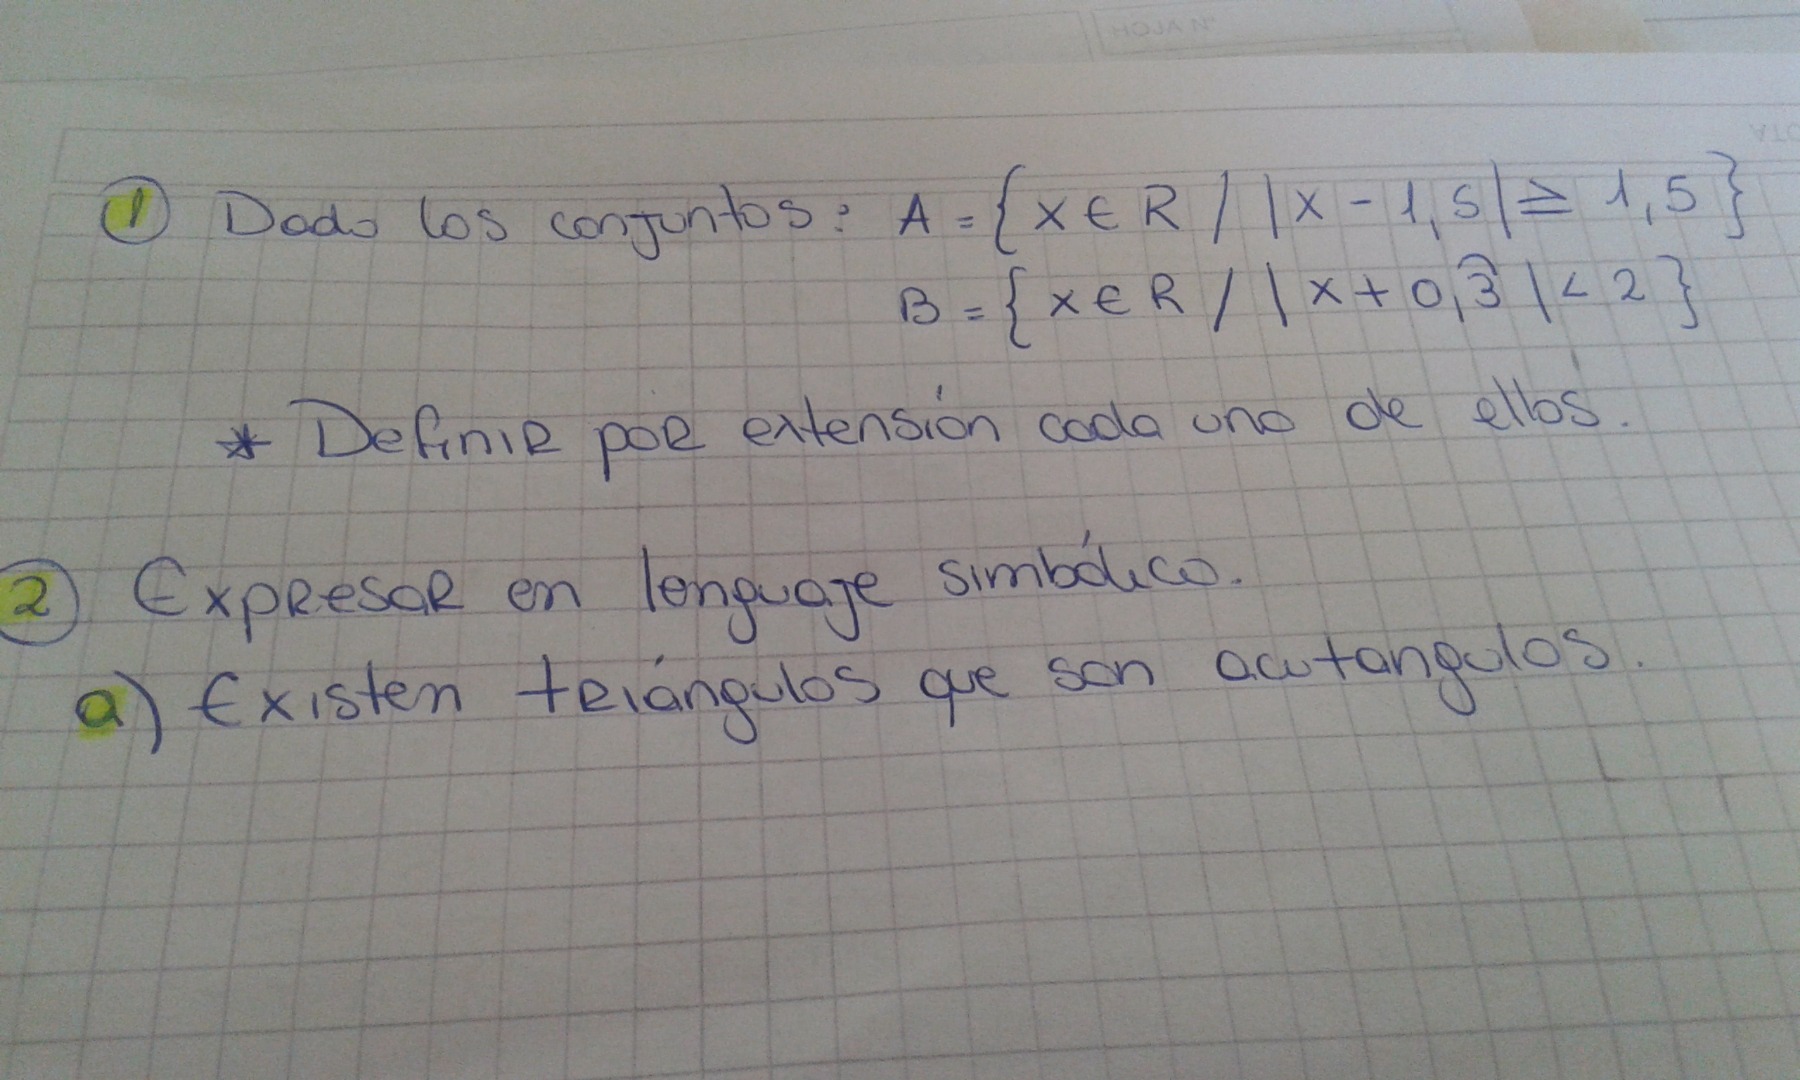 1 Dado los conjuntos: A = { x ∈ R / |x - 1,5| ≥ 1,5 }
B = { x ∈ R / | x + 0,3̑ | < 2 }
* Definir por extensión cada uno de ellos.
2 Expresar en lenguaje simbólico.
a) Existen triángulos que son acutangulos.